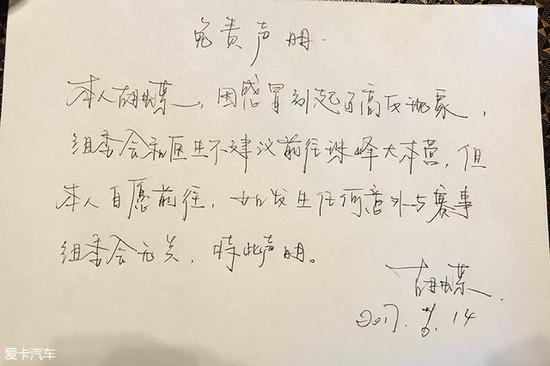 免责声明.
本人胡 ，因感冒引起了高反现象，
组委会和医生不建议前往珠峰大本营，但
本人自愿前往，如发生任何意外与赛事
组委会无关，特此声明。
胡
2017. . 14
爱卡汽车